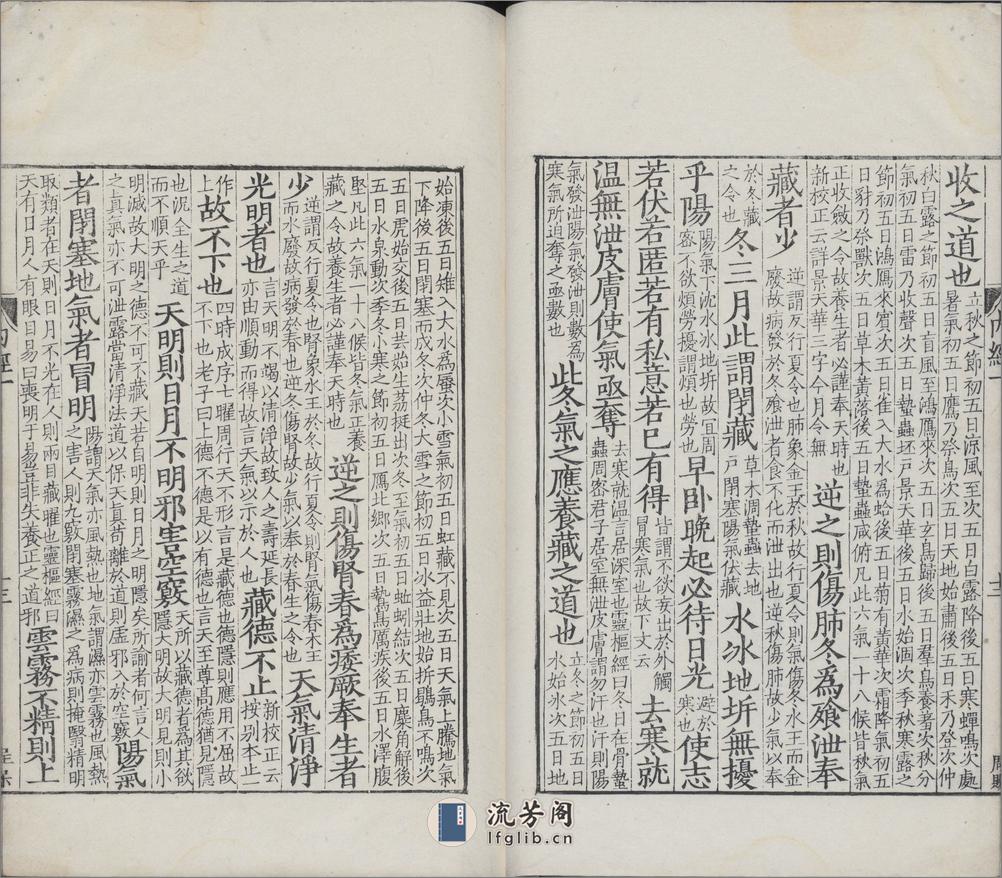 收之道也立秋之節初五日涼風至次五日白露降後五日寒蟬鳴次處暑氣初五日鷹乃祭鳥次五日天地始肅後五日禾乃登次仲
秋白露之節初五日盲風至鴻鴈來次五日玄鳥歸後五日羣鳥養羞次秋分氣初五日雷乃收聲次五日蟄蟲坯戶景天華後五日水始涸次季秋寒露之
節初五日鴻鴈來賓次五日雀入大水為蛤後五日菊有黃華次霜降氣初五日豺乃祭獸次五日草木黃落後五日蟄蟲咸俯凡此六氣一十八候皆秋氣
正收斂之令故養生者必謹奉天時也新校正云詳景天華三字今月令無逆之則傷肺冬為飱泄奉
藏者少逆謂反行夏令也肺象金王於秋故行夏令則氣傷冬水王而金廢故病發於冬飱泄者食不化而泄出也逆秋傷肺故少氣以奉
於冬藏之令也冬三月此謂閉藏草木凋蟄蟲去地戶閉塞陽氣伏藏水冰地坼無擾
乎陽陽氣下沈水冰地坼故宜周密不欲煩勞擾謂煩也勞也早臥晚起必待日光避於寒也使志
若伏若匿若有私意若已有得皆謂不欲妄出於外觸冒寒氣也故下文云去寒就
溫無泄皮膚使氣亟奪去寒就溫言居深室也靈樞經曰冬日在骨蟄蟲周密君子居室無泄皮膚謂勿汗也汗則陽
氣發泄陽氣發泄則數為寒氣所迫奪之亟數也此冬氣之應養藏之道也立冬之節初五日水始冰次五日地
內經一
十二
始凍後五日雉入大水為蜃次小雪氣初五日虹藏不見次五日天氣上騰地氣下降後五日閉塞而成冬次仲冬大雪之節初五日冰益壯地始坼鶡鳥不鳴次
五日虎始交後五日芸始生荔挺出次冬至氣初五日蚯蚓結次五日麋角解後五日水泉動次季冬小寒之節初五日鴈北鄉次五日鷙鳥厲疾後五日水澤腹
堅凡此六氣一十八候皆冬氣正養藏之令故養生者必謹奉天時也逆之則傷腎春為痿厥奉生者
少逆謂反行夏令也腎象水王於冬故行夏令則腎氣傷春木王而水廢故病發於春也逆冬傷腎故少氣以奉於春生之令也天氣清淨
光明者也言天明不竭以清淨故致人之壽延長亦由順動而得故言天氣以示於人也藏德不止新校正云按別本止
作上故不下也四時成序七曜周行天不形言是藏德也德隱則應用不屈故不下也老子曰上德不德是以有德也言天至尊高德猶見隱
也況全生之道而不順天乎天明則日月不明邪害空竅天所以藏德者為其欲隱大明故大明見則小
明滅故大明之德不可不藏天若自明則日月之明隱矣所諭者何言人之真氣亦不可泄露當清淨法道以保天真苟離於道則虛邪入於空竅陽氣
者閉塞地氣者冒明陽謂天氣亦風熱也地氣謂濕亦雲霧也風熱之害人則九竅閉塞霧濕之為病則掩翳精明
取類者在天則日月不光在人則兩目藏曜也靈樞經曰天有日月人有眼目易曰喪明于易豈非失養正之道邪雲霧不精則上
內經一
十三
流芳阁
lfglib.cn